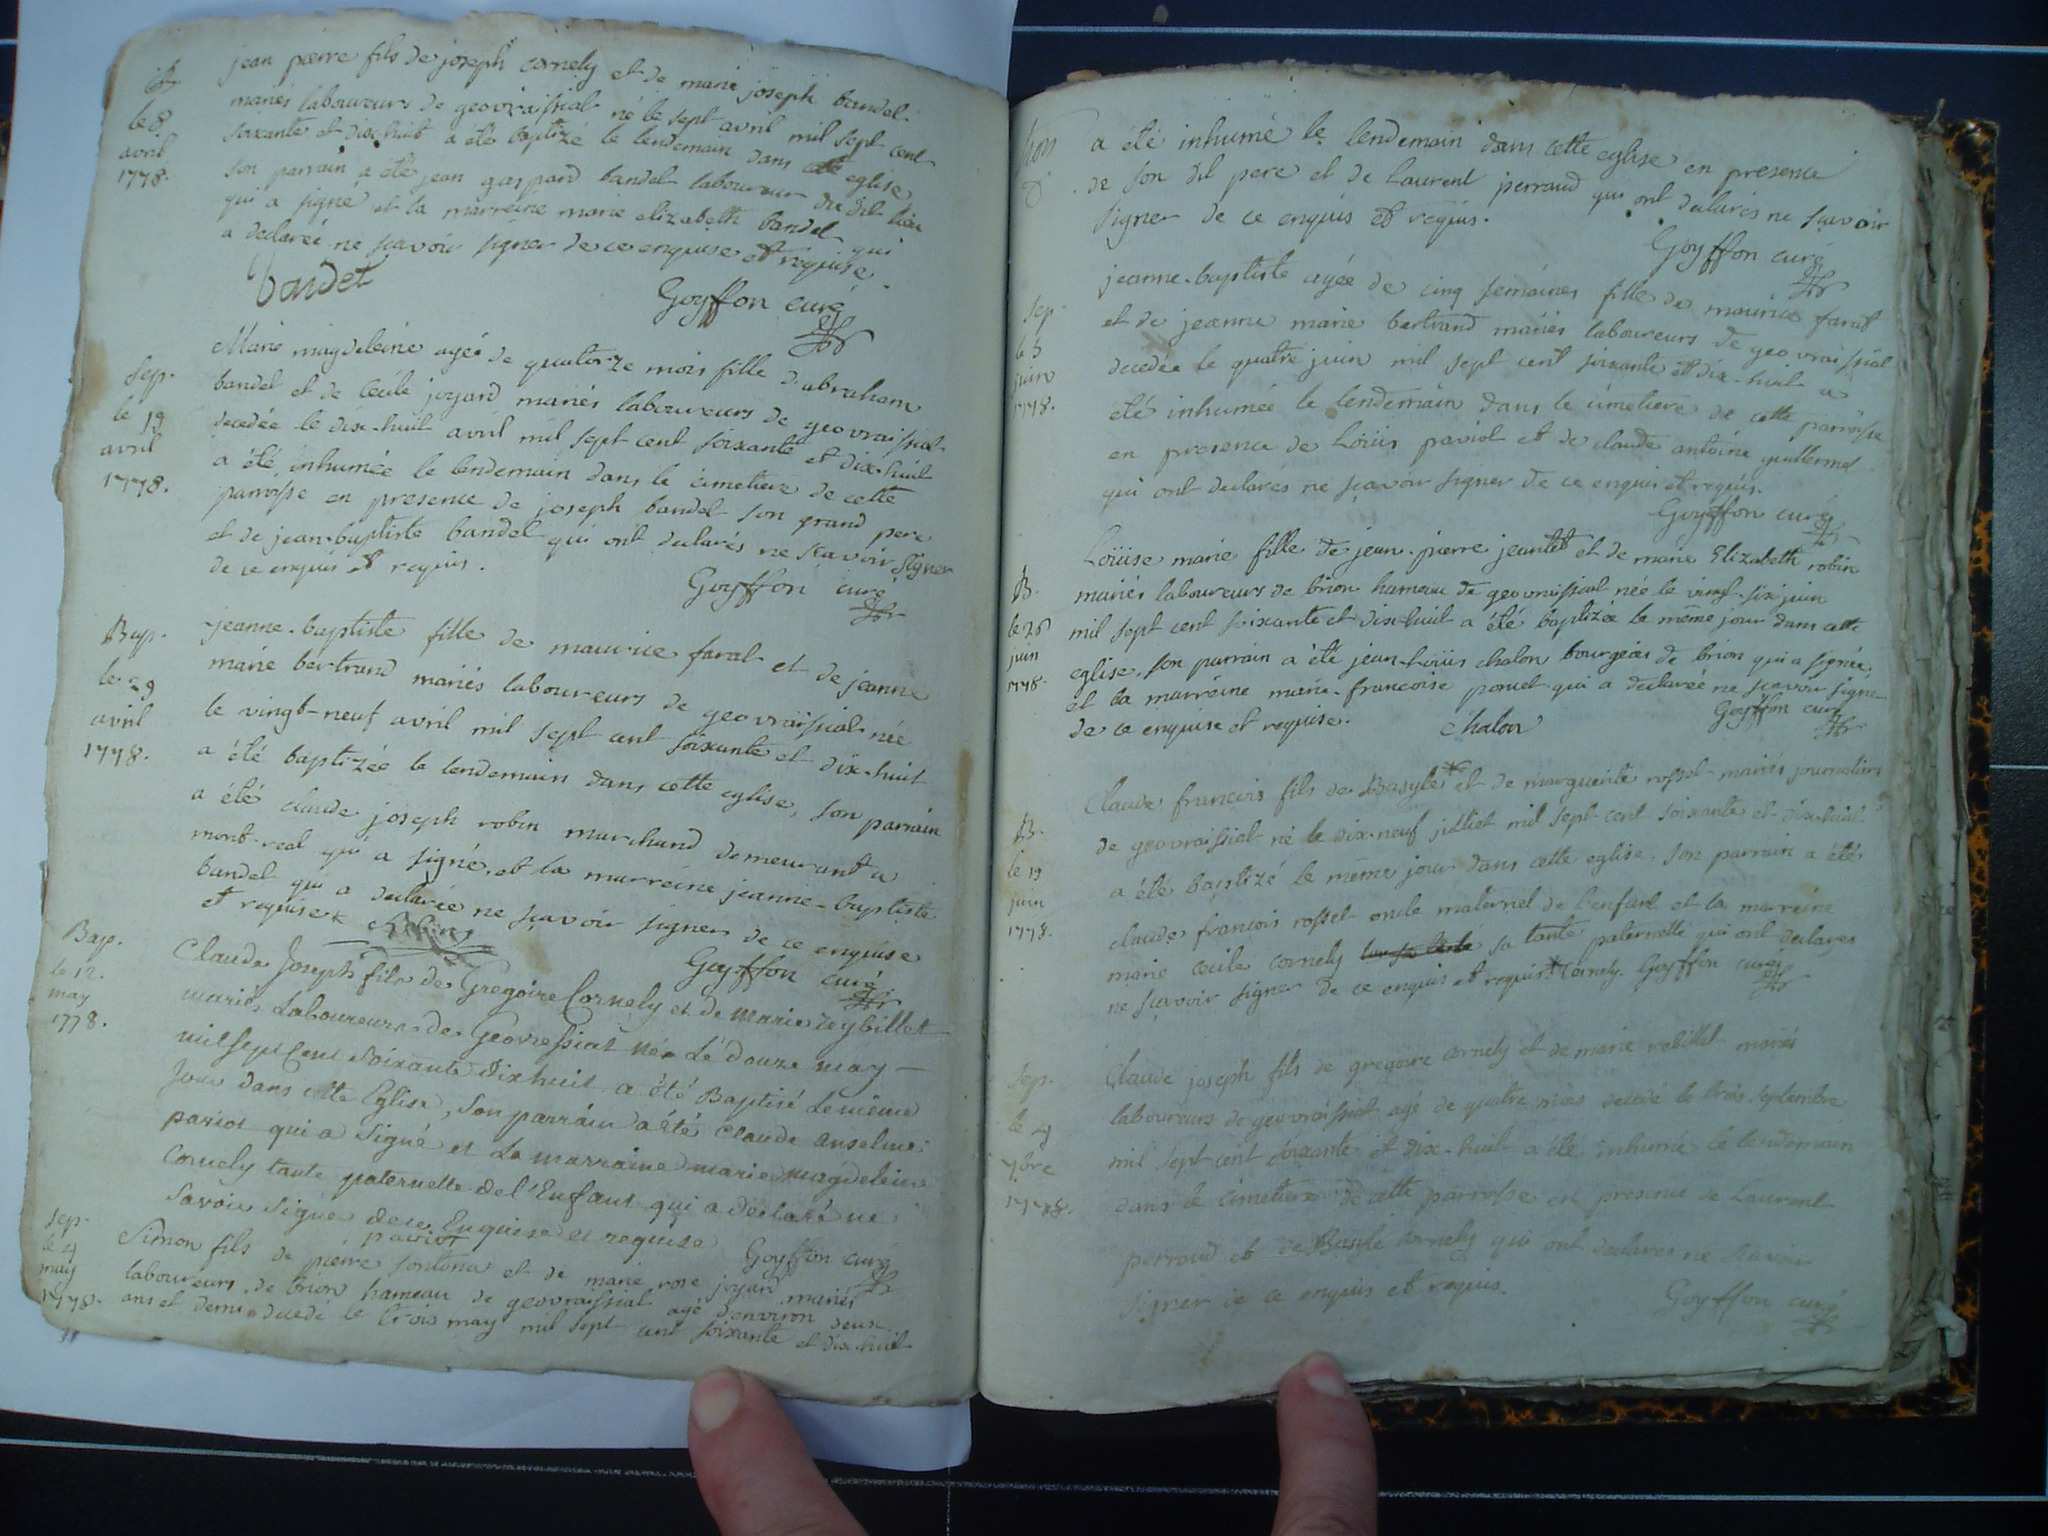 B.
le 8
avril
1778.
jean pierre fils de joseph cornely et de marie joseph bandel
mariés laboureurs de geovraissial né le sept avril mil sept cent
soixante et dix-huit a été baptizé le lendemain dans cette eglise
son parrain a été jean gaspard bandel laboureur du dit lieu
qui a signé et la marreine marie elizabeth bandel qui
a declarée ne sçavoir signer de ce enquise et requise.
Bandet
Goyffon curé
Sep.
le 19
avril
1778.
Marie magdeleine agée de quatorze mois fille d'abraham
bandel et de cecile joyard mariés laboureurs de geovraissial
decedée le dix-huit avril mil sept cent soixante et dix-huit
a été inhumée le lendemain dans le cimetiere de cette
parroisse en presence de joseph bandel son grand pere
et de jean-baptiste bandel qui ont declarés ne scavoir signer
de ce enquis et requis.
Goyffon curé
Bap.
le 29
avril
1778.
jeanne-baptiste fille de maurice farat et de jeanne
marie bertrand mariés laboureurs de geovraissial née
le vingt-neuf avril mil sept cent soixante et dix-huit
a été baptizée le lendemain dans cette eglise, son parrain
a été claude joseph robin marchand demeurant a
mont-real qui a signé, et la marreine jeanne-baptiste
bandel qui a declarée ne sçavoir signer de ce enquise
et requise
Goyffon curé
Bap.
le 12.
may
1778.
Claude Joseph fils de Gregoire Cornely et de Marie reybillet
mariés Laboureurs de Geovressiat né Le Douze may
mil sept cent soixante dix huit a été Baptisé Le même
Jour dans cette Eglise, Son parrain a été Claude anselme
paviot qui a Signé et La marraine marie magdeleine
Cornely tante paternelle de l'Enfant qui a déclaré ne
Savoir Signé de ce Enquise et requise
paviot
Goyffon curé
Sep.
le 4
may
1778.
Simon fils de pierre fontona et de marie rose joyard mariés
laboureurs de brion hameau de geovraissial agé d'environ deux
ans et demi decedé le trois may mil sept cent soixante et dix-huit
a été inhumé le lendemain dans cette eglise en presence
de son dit pere et de Laurent perraud qui ont declarés ne sçavoir
signer de ce enquis et requis.
Goyffon curé
Sep.
le 5
juin
1778.
jeanne-baptiste agée de cinq semaines fille de maurice farat
et de jeanne marie bertrand mariés laboureurs de geovraissial
decedée le quatre juin mil sept cent soixante et dix-huit a
été inhumée le lendemain dans le cimetiere de cette parroisse
en presence de Loüis paviot et de claude antoine guillermet
qui ont declarés ne sçavoir signer de ce enquis et requis.
Goyffon curé
B.
le 26
juin
1778.
Loüise marie fille de jean-pierre jeantet et de marie Elizabeth robin
mariés laboureurs de brion hameau de geovraissial née le vingt-six juin
mil sept cent soixante et dix-huit a été baptizée le même jour dans cette
eglise, son parrain a été jean-Loüis chalon bourgeois de brion qui a signé,
et la marreine marie-francoise ponet qui a declarée ne sçavoir signer
de ce enquise et requise.
chalon
Goyffon curé
B.
le 19
juin
1778.
Claude francois fils de Basyle et de marguerite rosset mariés journaliers
de geovraissiat né le dix-neuf jüillet mil sept-cent soixante et dix-huit
a été baptizé le même jour dans cette eglise, son parrain a été
claude francois rosset oncle maternel de l'enfant et la marreine
marie cecile cornely sa tante paternelle qui ont declarés
ne sçavoir signer de ce enquis et requis. * Cornely. Goyffon curé
Sep.
le 4
7bre
1778.
Claude joseph fils de gregoire cornely et de marie rebillet mariés
laboureurs de geovraissiat agé de quatre mois decedé le trois septembre
mil sept cent soixante et dix-huit a été inhumé le lendemain
dans le cimetiere de cette parroisse en presence de Laurent
perraud et de Basyle cornely qui ont declarés ne scavoir
signer de ce enquis et requis.
Goyffon curé